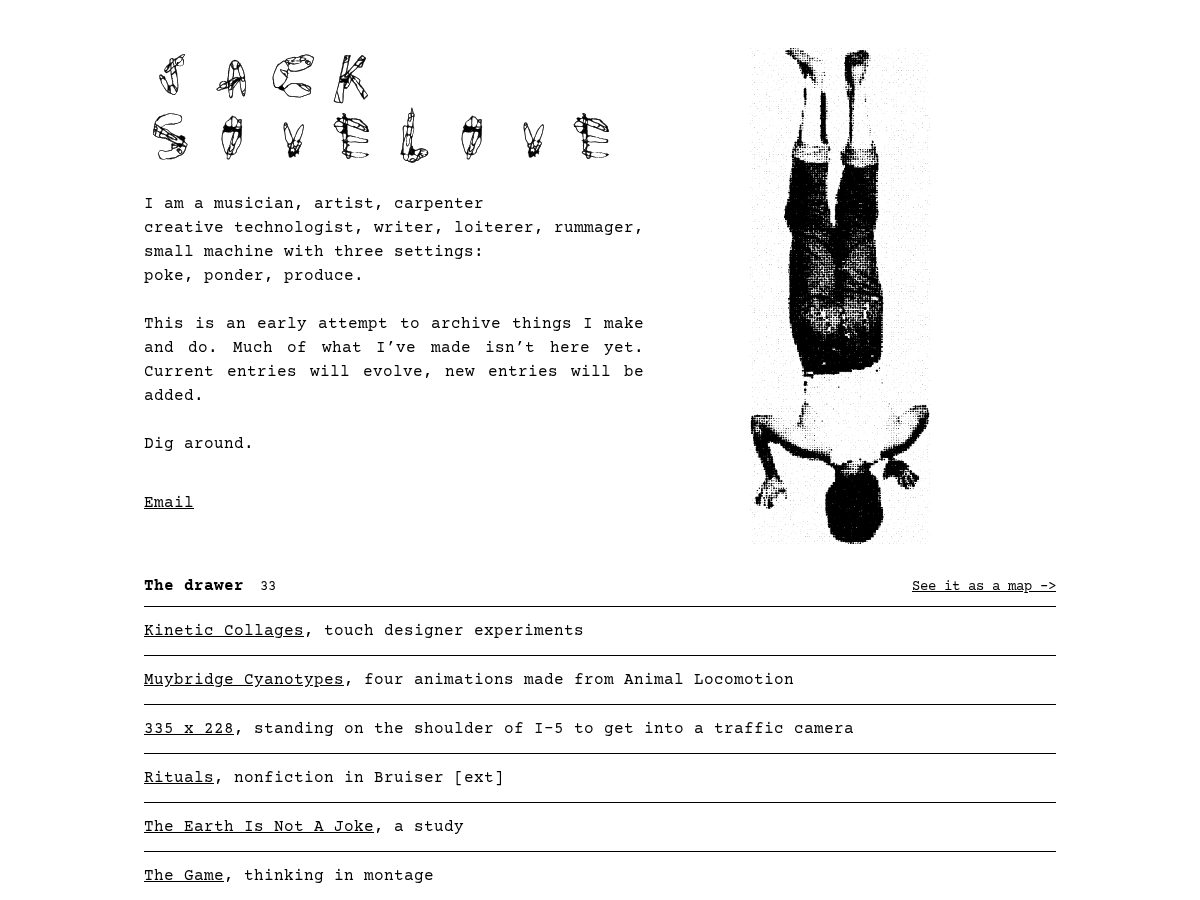 JACK
SOVELOVE
I am a musician, artist, carpenter
creative technologist, writer, loiterer, rummager,
small machine with three settings:
poke, ponder, produce.
This is an early attempt to archive things I make
and do. Much of what I’ve made isn’t here yet.
Current entries will evolve, new entries will be
added.
Dig around.
Email
The drawer 33
See it as a map –>
Kinetic Collages, touch designer experiments
Muybridge Cyanotypes, four animations made from Animal Locomotion
335 x 228, standing on the shoulder of I-5 to get into a traffic camera
Rituals, nonfiction in Bruiser [ext]
The Earth Is Not A Joke, a study
The Game, thinking in montage